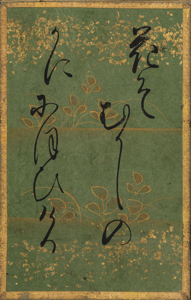 花そむかしの
かににほひける